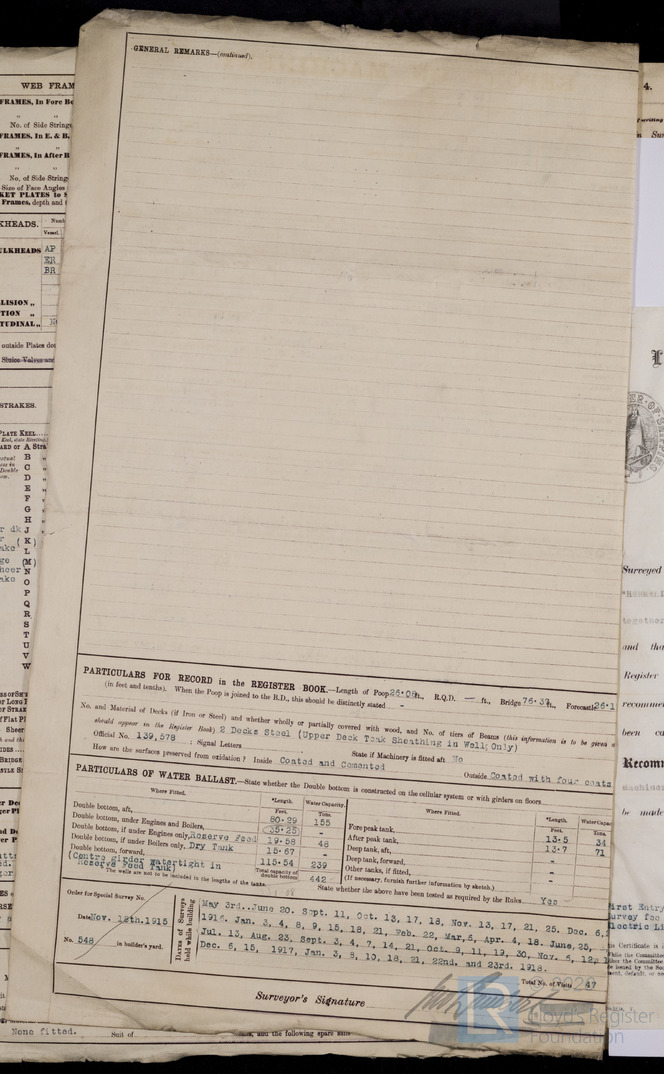 GENERAL REMARKS—(continued).
PARTICULARS FOR RECORD in the REGISTER BOOK.—Length of Poop 26·08 ft., R.Q.D. — ft., Bridge 76·39 ft., Forecastle 26·1
(in feet and tenths). When the Poop is joined to the B.D., this should be distinctly stated -
No. and Material of Decks (if Iron or Steel) and whether wholly or partially covered with wood, and No. of tiers of Beams (this information is to be given as
should appear in the Register Book) 2 Decks Steel (Upper Deck Teak Sheathing in Well Only)
Official No. 139,578 ; Signal Letters State if Machinery is fitted aft No
How are the surfaces preserved from oxidation? Inside Coated and Cemented Outside Coated with four coats
PARTICULARS OF WATER BALLAST.—State whether the Double bottom is constructed on the cellular system or with girders on floors
Where Fitted. *Length. Water Capacity. Where Fitted. *Length. Water Capac
Feet. Tons. Feet. Tons.
Double bottom, aft, 80·29 155 Fore peak tank, 13·5 34
Double bottom, under Engines and Boilers, 35·25 - After peak tank, 13·7 71
Double bottom, if under Engines only, Reserve Feed 19·58 48 Deep tank, aft, -
Double bottom, if under Boilers only, Dry Tank 15·67 - Deep tank, forward, -
Double bottom, forward, 115·54 239 Other tanks, if fitted, -
(Centre girder watertight in Reserve Feed Tank) Total capacity of double bottom 442 (If necessary, furnish further information by sketch.)
* The wells are not to be included in the lengths of the tanks. State whether the above have been tested as required by the Rules Yes
Order for Special Survey No.
Date Nov. 18th.1915
No. 548 in builder's yard.
Dates of Surveys held while building
May 3rd..June 20. Sept. 11, Oct. 13, 17, 18, Nov. 13, 17, 21, 25. Dec. 6,
1916. Jan. 3, 4, 8, 9, 15, 18, 21, Feb. 22, Mar,6, Apr. 4, 18. June,25,
Jul. 13, Aug. 23, Sept. 3, 4, 7, 14, 21, Oct. 9, 11, 19, 30, Nov. 6, 12,
Dec. 6, 15, 1917, Jan. 3, 8, 10, 18, 21, 22nd. and 23rd. 1918.
Total No. of Visits 47
Surveyor's Signature
Lloyd's Register
Foundation
WEB FRAM
FRAMES, In Fore Bo
No. of Side String
FRAMES, In E. & B.
FRAMES, In After B
No. of Side String
Size of Face Angles
KET PLATES to
Frames, depth and
KHEADS.
Vessel.
ULKHEADS AP
ER
BR
LISION „
TION „
TUDINAL „
outside Plates do
Sluice Valves and
STRAKES.
PLATE KEEL
A Stra
B
C
D
E
F
G
H
J
K
L
M
N
O
P
Q
R
S
T
U
V
W
None fitted. Suit of and the following spare sails
4.
Surveyed
together
and tha
Register
recomme
been ca
Recom
be made
First Entry
Survey fee
Electric Li